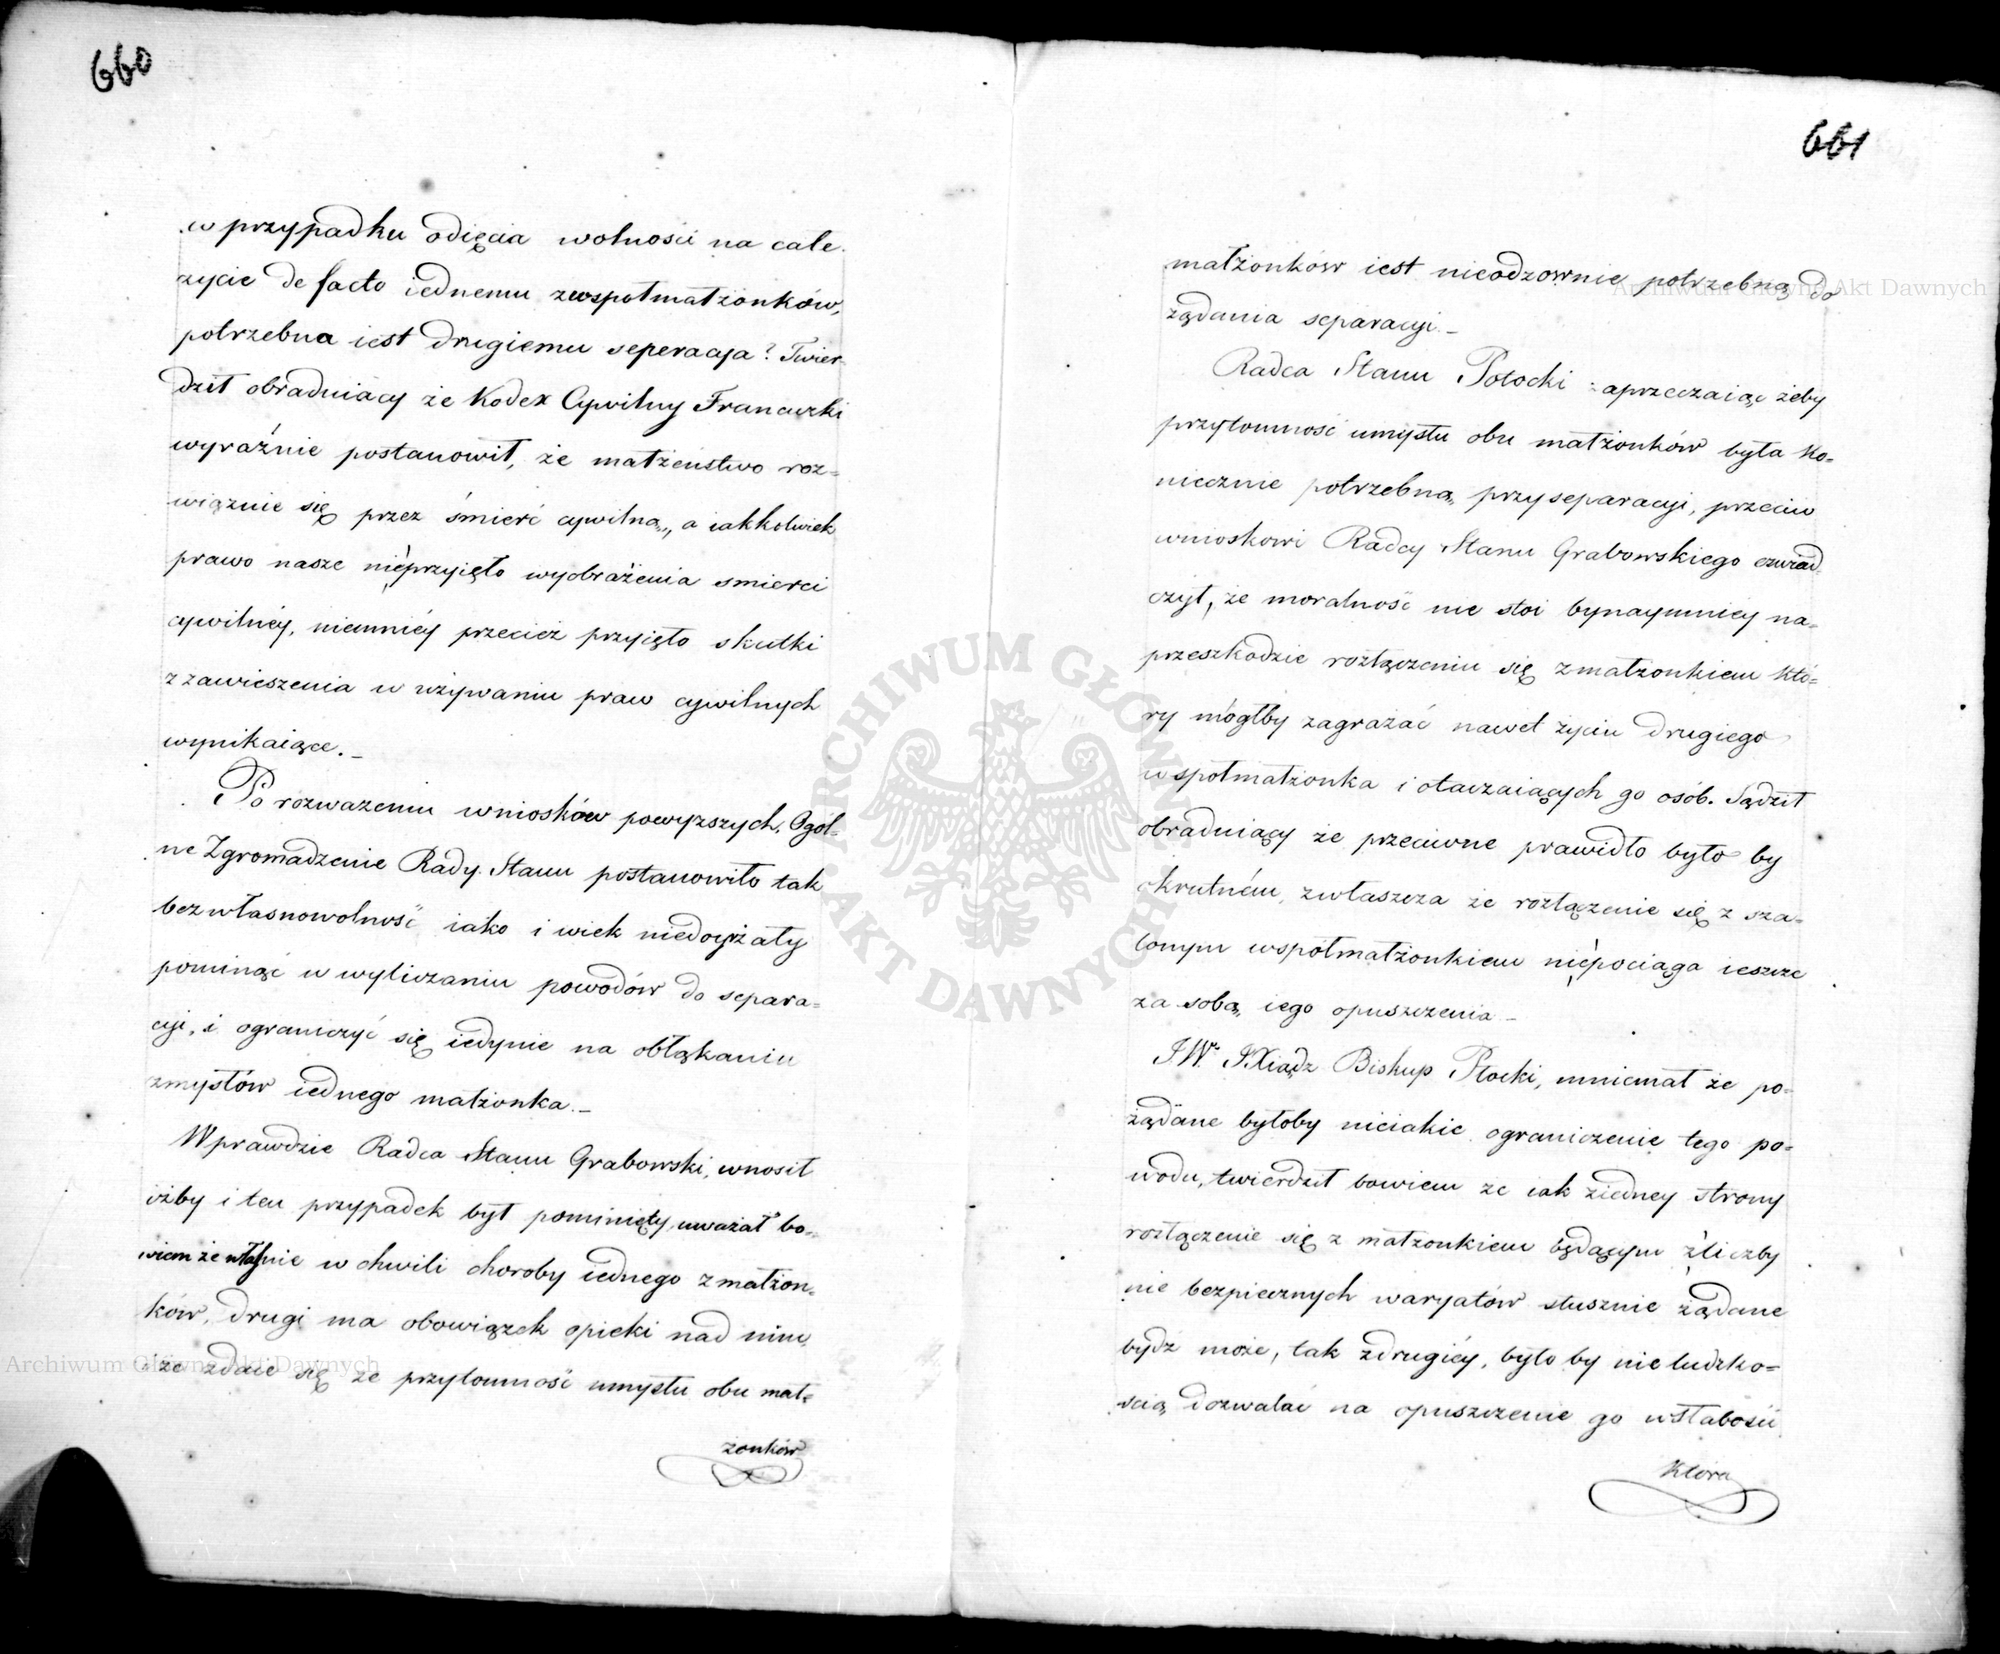 660
w przypadku odięcia wolności na całe
życie de facto iednemu zwspółmałżonków,
potrzebna iest drugiemu seperacya? Twier-
dził obraduiący że Kodex Cywilny Francuzki
wyraźnie postanowił, że małżeństwo roz-
wiąznie się przez śmierć cywilną, a iakkolwiek
prawo nasze nieprzyięło wyobrażenia smierci
cywilnéy, niemniéy przecież przyięło skutki
z zawieszenia w używaniu praw cywilnych
wynikaiące. –
Po rozważeniu wniosków powyższych, Ogól-
ne Zgromadzenie Rady Stanu postanowiło tak
bezwłasnowolność iako i wiek niedoyźały
pominąć w wyliczaniu powodów do separa-
cyi, i ograniczyć się iedynie na obłąkaniu
zmysłów iednego małżonka. –
Wprawdzie Radca Stanu Grabowski, wnosił
iżby i ten przypadek był pominięty, uważał bo-
wiem że właśnie w chwili choroby iednego z małżon-
ków, drugi ma obowiązek opieki nad nim,
że zdaie się że przytomność umysłu obu mał-
żonków
661
małżonków iest nieodzownie potrzebną do
żądania separacyi. –
Radca Stanu Potocki zaprzeczaiąc żeby
przytomność umysłu obu małżonków była ko-
niecznie potrzebną, przy separacyi, przeciw
wnioskowi Radcy Stanu Grabowskiego oświad-
czył, że moralność nie stoi bynaymniey na-
przeszkodzie rozłączeniu się z małżonkiem któ-
ry mógłby zagrażać nawet życiu drugiego
współmałżonka i otaczaiących go osób. Sądził
obraduiący że przeciwne prawidło było by
okrutném, zwłaszcza że rozłączenie się z sza-
lonym współmałżonkiem niepociąga ieszcze
za sobą, iego opuszczenia –
J.W. JXiądz Biskup Płocki, mniemał że po-
żądane byłoby nieiakie ograniczenie tego po-
wodu, twierdził bowiem że iak ziedney strony
rozłączenie się z małżonkiem będącym z liczby
nie bezpiecznych waryatów słusznie żądane
bydź może, tak zdrugiéy, było by nie ludzko-
ścią dozwalać na opuszczenie go w słabości
która
ARCHIWUM GŁÓWNE AKT DAWNYCH
Archiwum Główne Akt Dawnych
Archiwum Główne Akt Dawnych